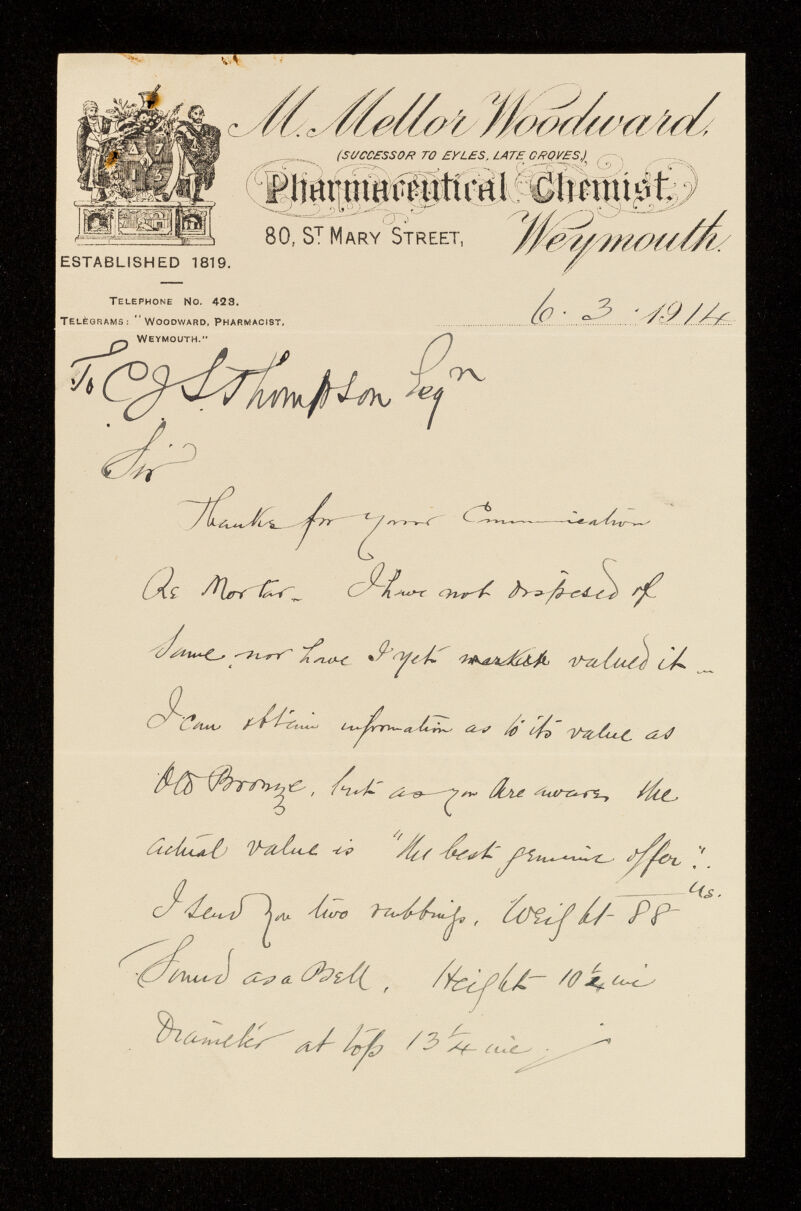 M. Mellor Woodward,
(SUCCESSOR TO EYLES, LATE GROVES),
Pharmaceutical Chemist,
80, ST MARY STREET,
Weymouth.
ESTABLISHED 1819.
TELEPHONE No. 423.
TELEGRAMS: "WOODWARD, PHARMACIST,
WEYMOUTH."
6. 3. 1914
To C J S Thompson Esqr
Sir
Thanks for your Communication
Re Mortar. I have not disposed of
same, nor have I yet valued it
I can obtain information as to its value as
Old Bronze, but as you are aware, the
actual value is "the best genuine offer".
I send you two rubbings, Weight 88 lbs.
Sound as a Bell, Height 10 1/2 in
Diameter at top 13 1/4 in.